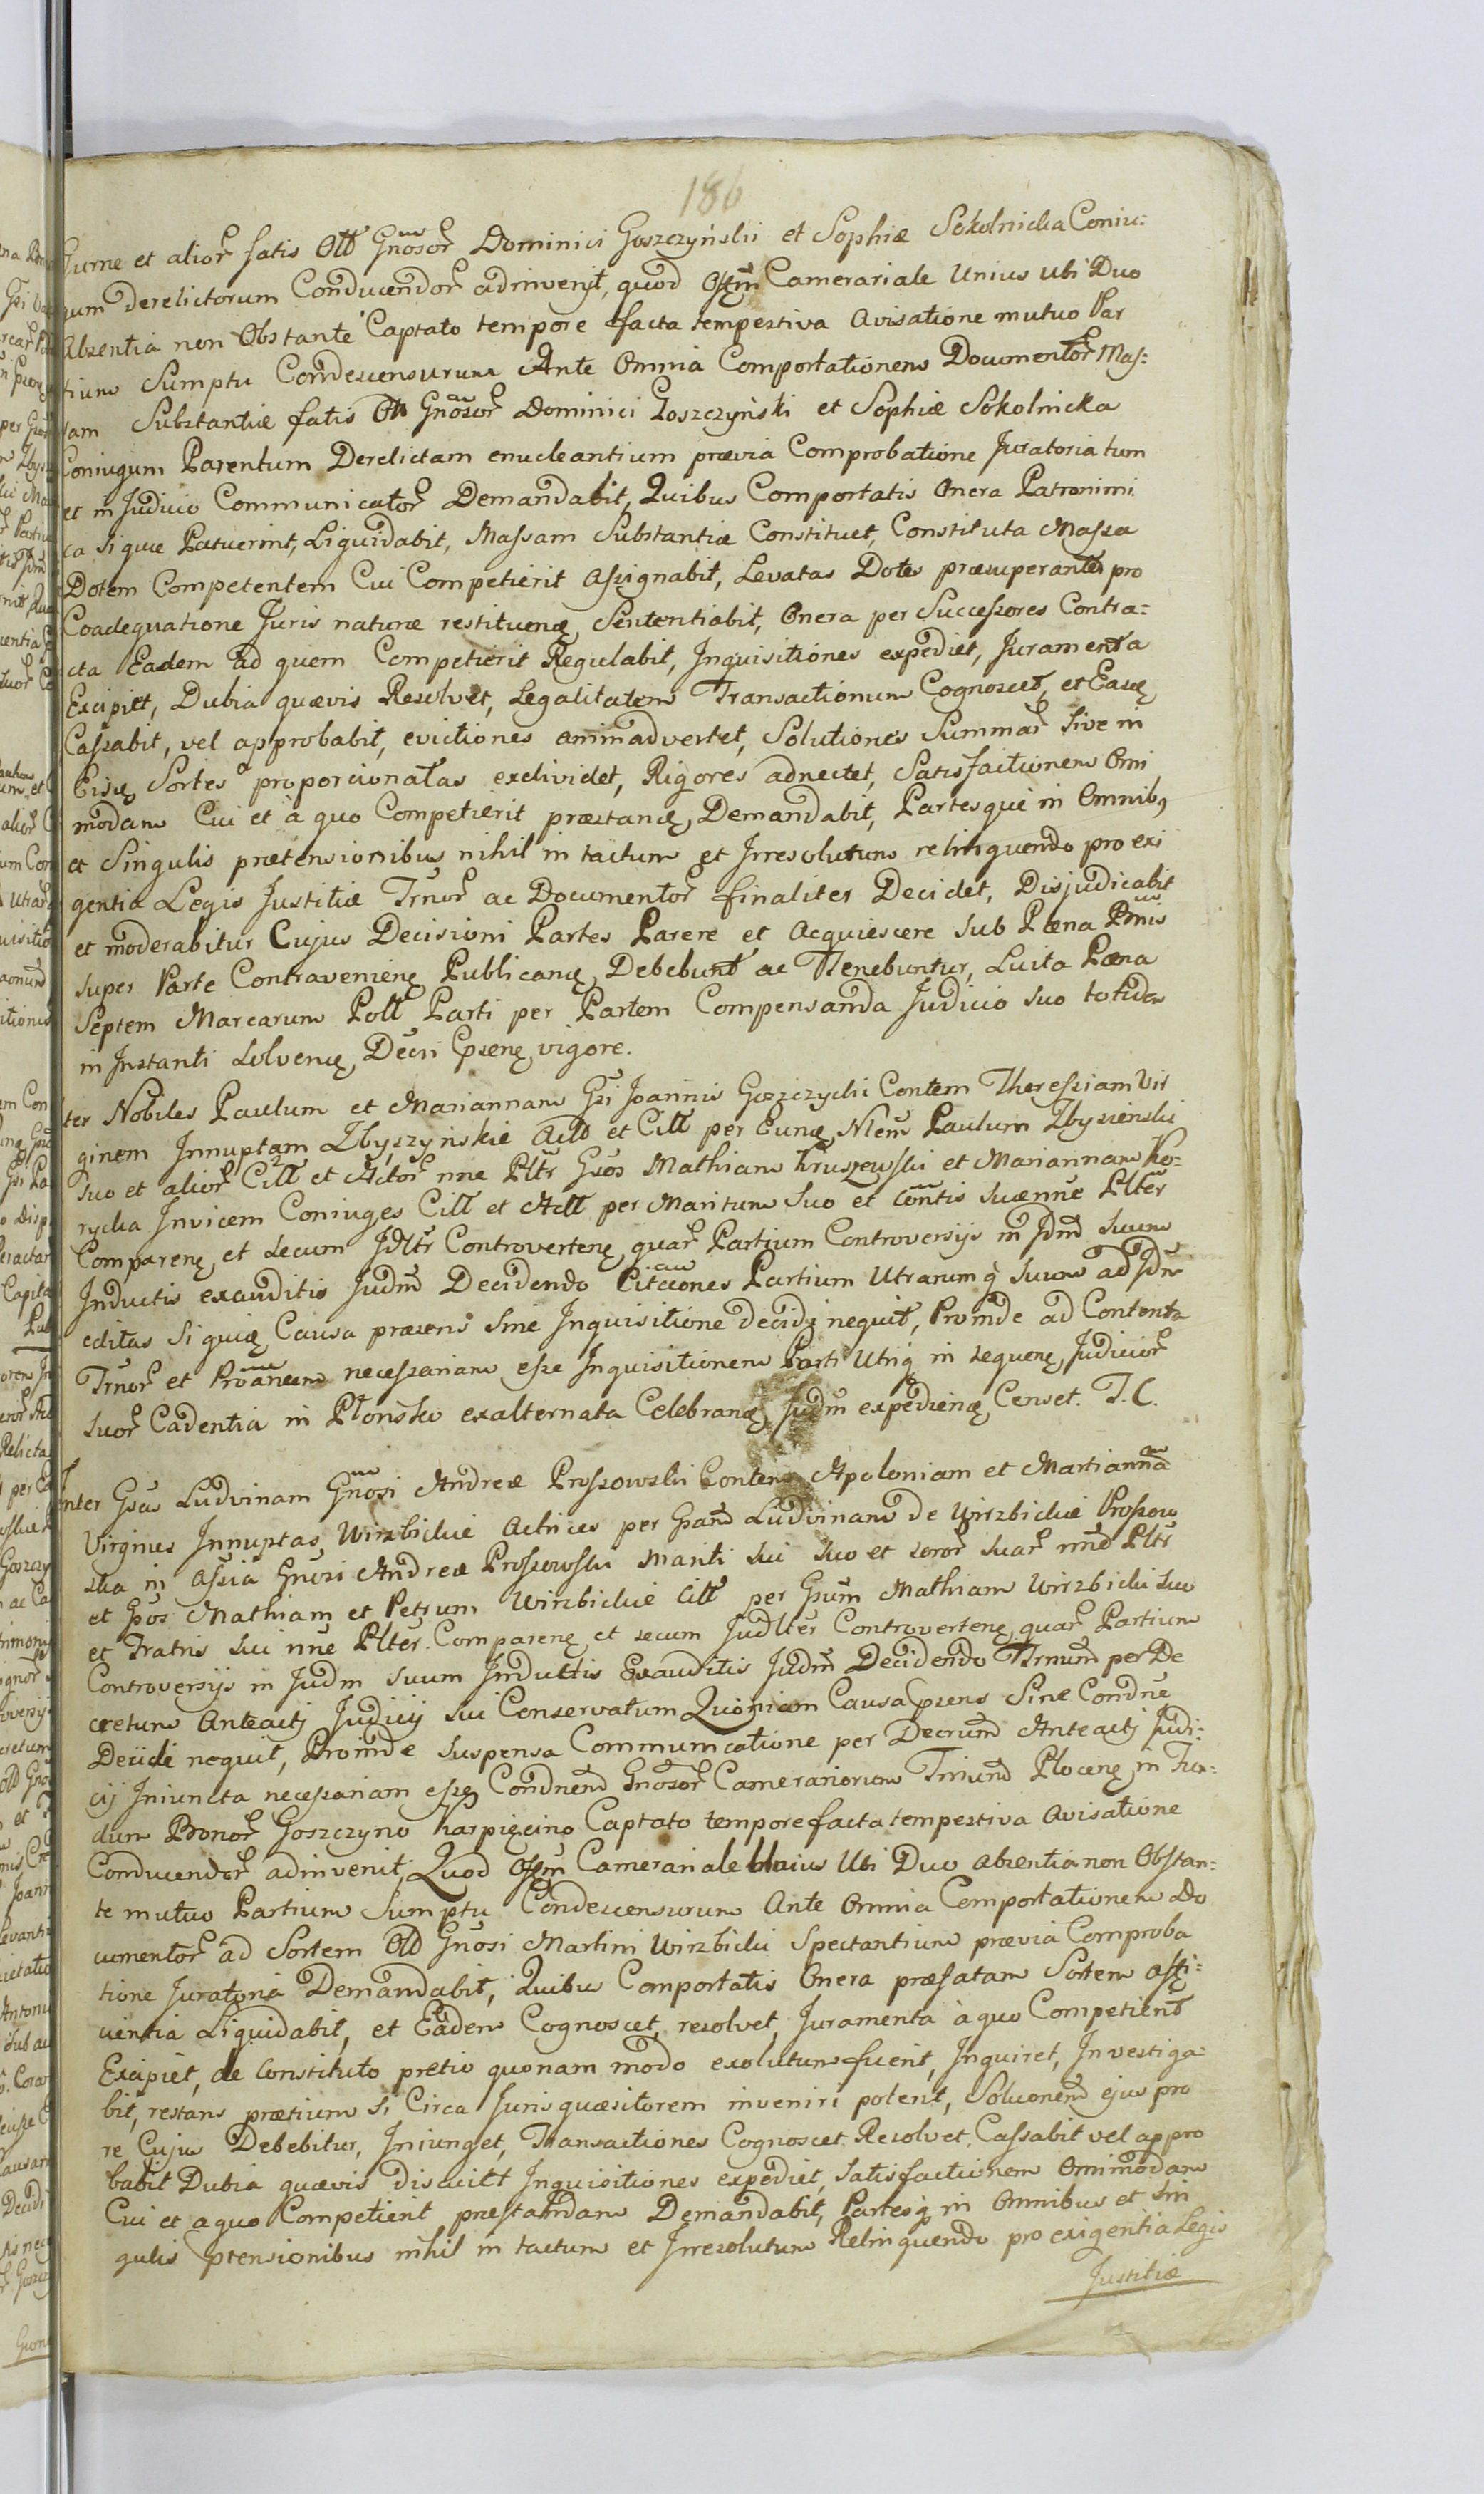 186
Gurne et alior fatis Olt Gnosor Dominici Goszczyński et Sophiæ Sokolnicka Coniu:
gum derelictorum Conducendor adinvenit, quod Camerariale Unius ubi Duo
Absentia non Obstante Captato tempore facta tempestiva Avisatione mutuo Par
tium Sumptu Condescensurum Ante Omnia Comportationem Documentor Mas:
sam Substantiæ fatis Olt Gnosor Dominici Goszczyński et Sophiæ Sokolnicka
Coniugum Parentum Derelictam enucleantium prævia Comprobatione Juratoria tum
et in Judicio Communicator Demandabit, Quibus Comportatis Onera Patronimi
ca si quæ Patuerint, Liquidabit, Massam Substantiæ Constituet, Constituta Massa
Dotem Competentem Cui Competierit Assignabit, Levatas Dotes præsuperantes pro
Coadequatione Juris naturæ restituenę Sententiabit, Onera per Successores Contra=
cta Eadem ad quem Competierit Regulabit, Inquisitiones expediet, Juramenta
Excipiet, Dubia quævis Resolvet, Legalitatem Transactionum Cognoscet, et Easdę
Cassabit, vel approbabit, evictiones animadvertet, Solutiones Summar sive in
Eisdę Sortes proporcionatas exdividet, Rigores adnectet, Satisfactionem Omi
modam Cui et à quo Competierit præstandę Demandabit, Partesque in Omnibꝫ
et Singulis prætensionibus nihil in tactum et Irresolutum relinquendo pro exi
gentia Legis Justitiæ Trnor ac Documentor finaliter Decidet, Disjudicabit
et moderabitur Cujus Decisioni Partes Parere et Acquiescere sub Pœna Pnnis
super Parte Contravenienę Publicandę Debebunt ac Tenebuntur, Luita Pœna
Septem Marcarum Poll Parti per Partem Compensanda Judicio suo totidem
in Instanti Solvendę Decri Cpsenę vigore.
ter Nobiles Paulum et Mariannam Gsi Joannis Goszczycki Contem Theressiam Vir
ginem Innuptam Zbyszyńskie Actt et Citt per Eundę Nlem Paulum Zbysienski
suo et alior Citt et Actor nne Pltr Gsos Mathiam Kruszewski et Mariannam Ko:
rycka Invicem Coniuges Citt et Actt per Maritum suo et Contis suæ nne Plter
Comparenę et secum Jdltr Controvertenę quar Partium Controversijs in Jdm suum
Inductis exauditis Judm Decidendo Citaciones Partium Utrarumq̨ suum ad Jdm
editas Si quię Causa præsens sine Inquisitione decidi nequit, Proinde ad Contenta
Trnor et Proancem necessariam esse Inquisitionem Parti Utriq̨ in sequenę Judicior
suor Cadentia in Płonsko exalternata Celebrandę Judm expediendę Censet. T. C.
Inter Gsas Ludvinam Gnosi Andreæ Prossowski Contem Apoloniam et Martiannā
Virgines Innuptas Wirzbickie Actrices per Gsam Ludvinam de Wirzbickie Prossow
ska in Assia Gnosi Andreæ Prossowski Mariti sui suo et soror suar nne Pltr
et Gsos Mathiam et Petrum Wirzbickie Citt per Gsum Mathiam Wirzbicki suo
et Fratris sui nne Plter. Comparenę et secum Judlter Controvertenę quar Partium
Controversijs in Judm suum Inductis Exauditis Judm Decidendo Trnum per De
cretum Anteacti Judicij sui Conservatum Quoniam Causa Psens Sine Condne
Decidi nequit, Proinde suspensa Communicatione per Decrum Anteacti Judi:
cij Iniuncta necessariam esse Condnem Gnosor Camerariorum Plocenę in Fun:
dum Bonor Goszczyno Karpięcino Captato tempore facta tempestiva Avisatione
Conducendor adinvenit, Quod Camerariale Unius Ubi Duo absentia non Obstan:
te mutuo Partium Sumptu Condescensurum Ante Omnia Comportationem Do
cumentor ad Sortem Old Gnosi Martini Wirzbicki Spectantium prævia Comproba
tione Juratoria Demandabit, Quibus Comportatis Onera præfatam Sortem affi:
cientia Liquidabit, et Eadem Cognoscet, resolvet, Juramenta à quo Competient
Excipiet, de Constituto pretio quonam modo exolutum fuerit, Inquiret, Investiga:
bit, restans prætium si Circa Juris quæsitorem inveniri poterit, Soluonem ejus pro
re Cujus Debebitur, Iniunget, Transactiones Cognoscet Resolvet, Cassabit vel appro
babit Dubia quævis discutit Inquisitiones expediet, satisfactionem Omimodam
Cui et a quo Competient præstandam Demandabit, Partesq̨ in Omnibus et Sin
gulis ptensionibus nihil in tactum et Irresolutum Relinquendo pro exigentia Legis
Justitiæ